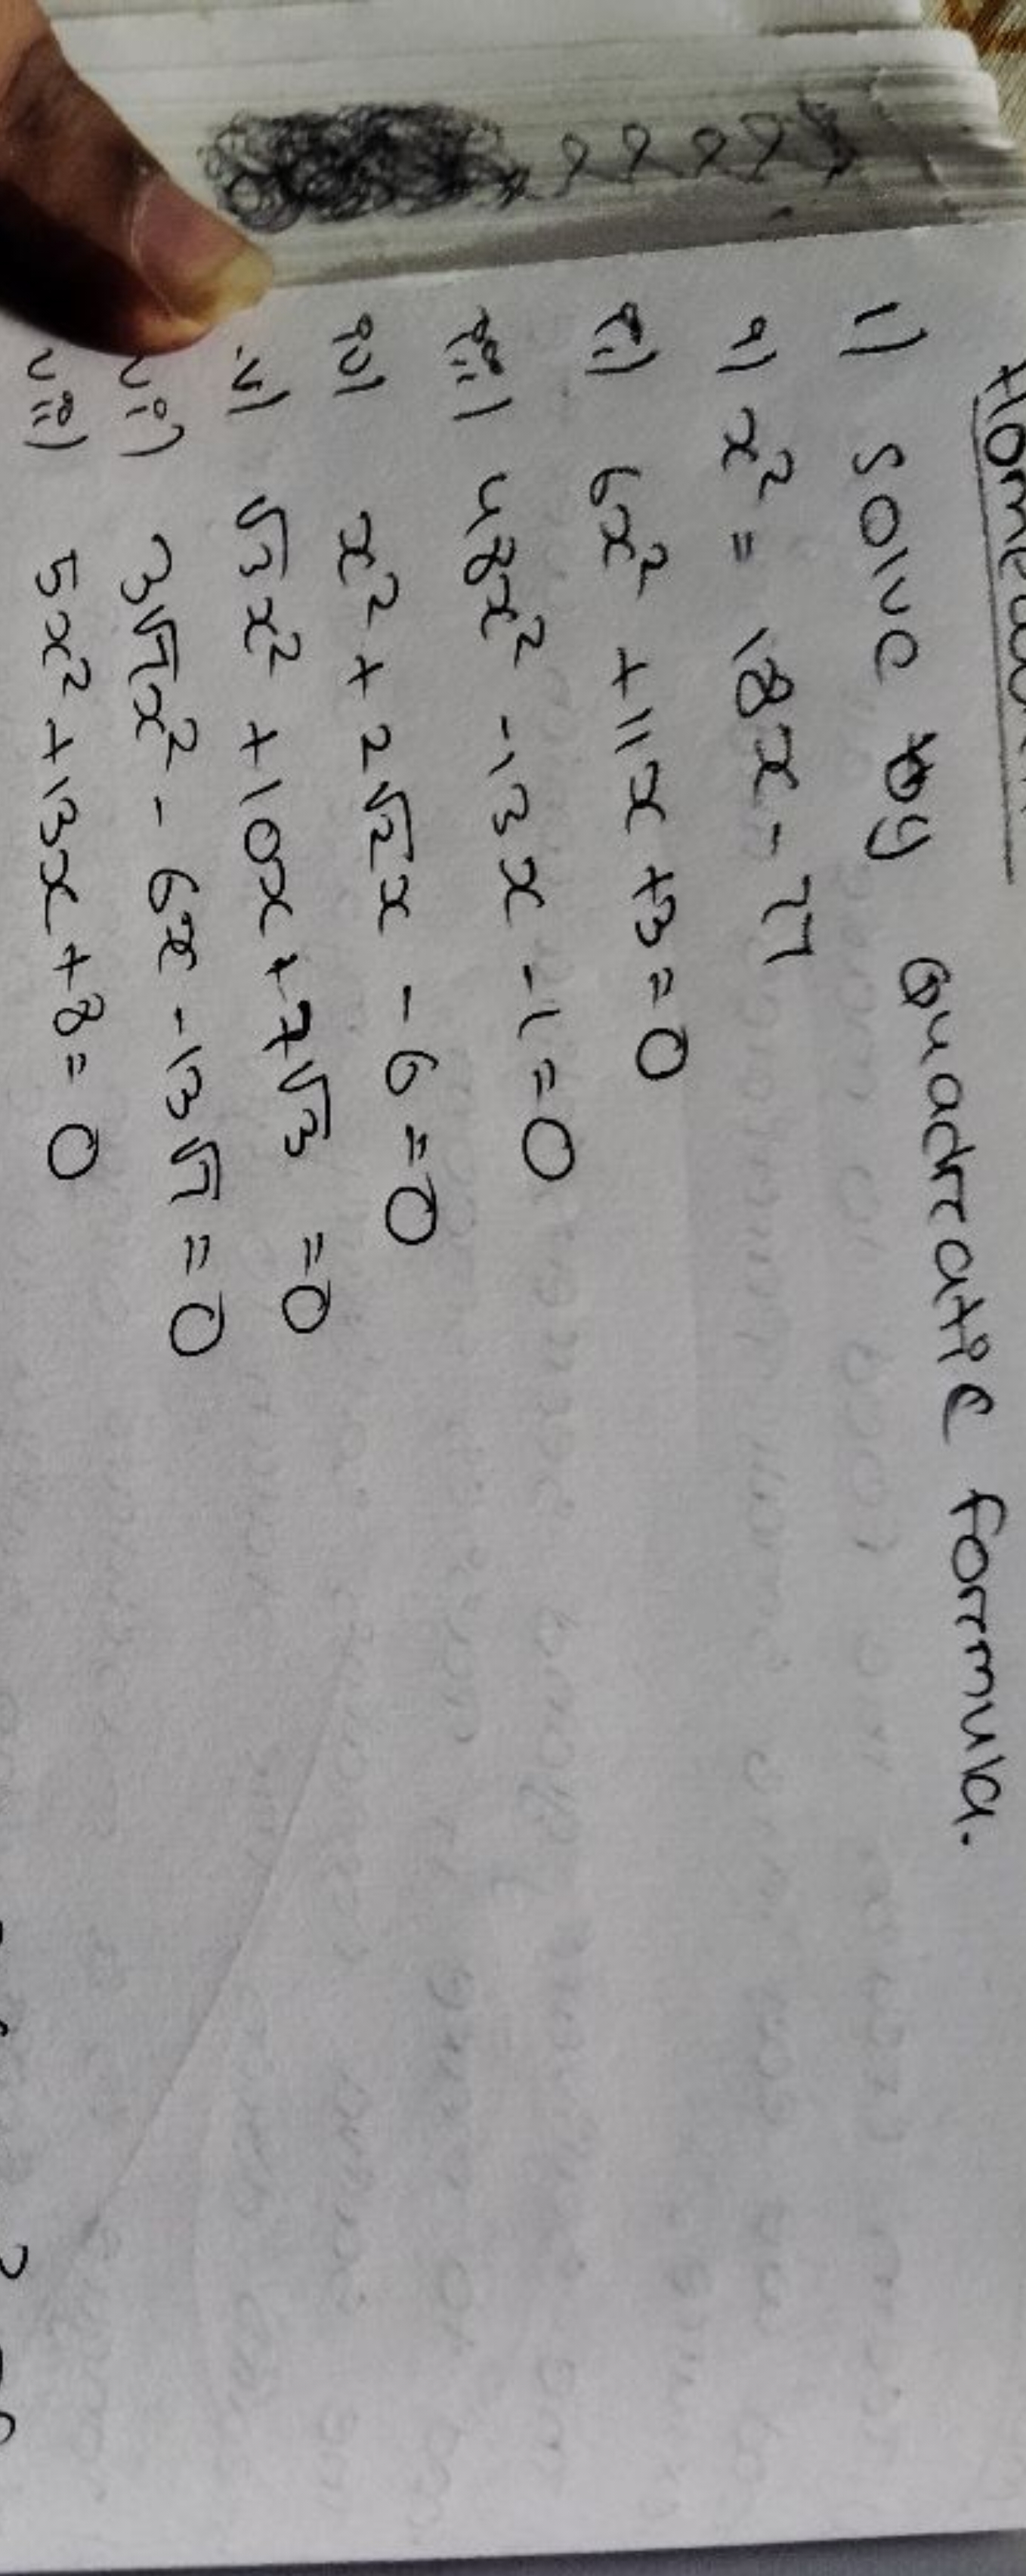 Homework
1) Solve by Quadratic formula.
i) x² = 18x - 77
ii) 6x² + 11x + 3 = 0
iii) 48x² - 13x - 1 = 0
iv) x² + 2√2x - 6 = 0
v) √3x² + 10x + 7√3 = 0
vi) 3√7x² - 6x - 13√7 = 0
vii) 5x² + 13x + 8 = 0